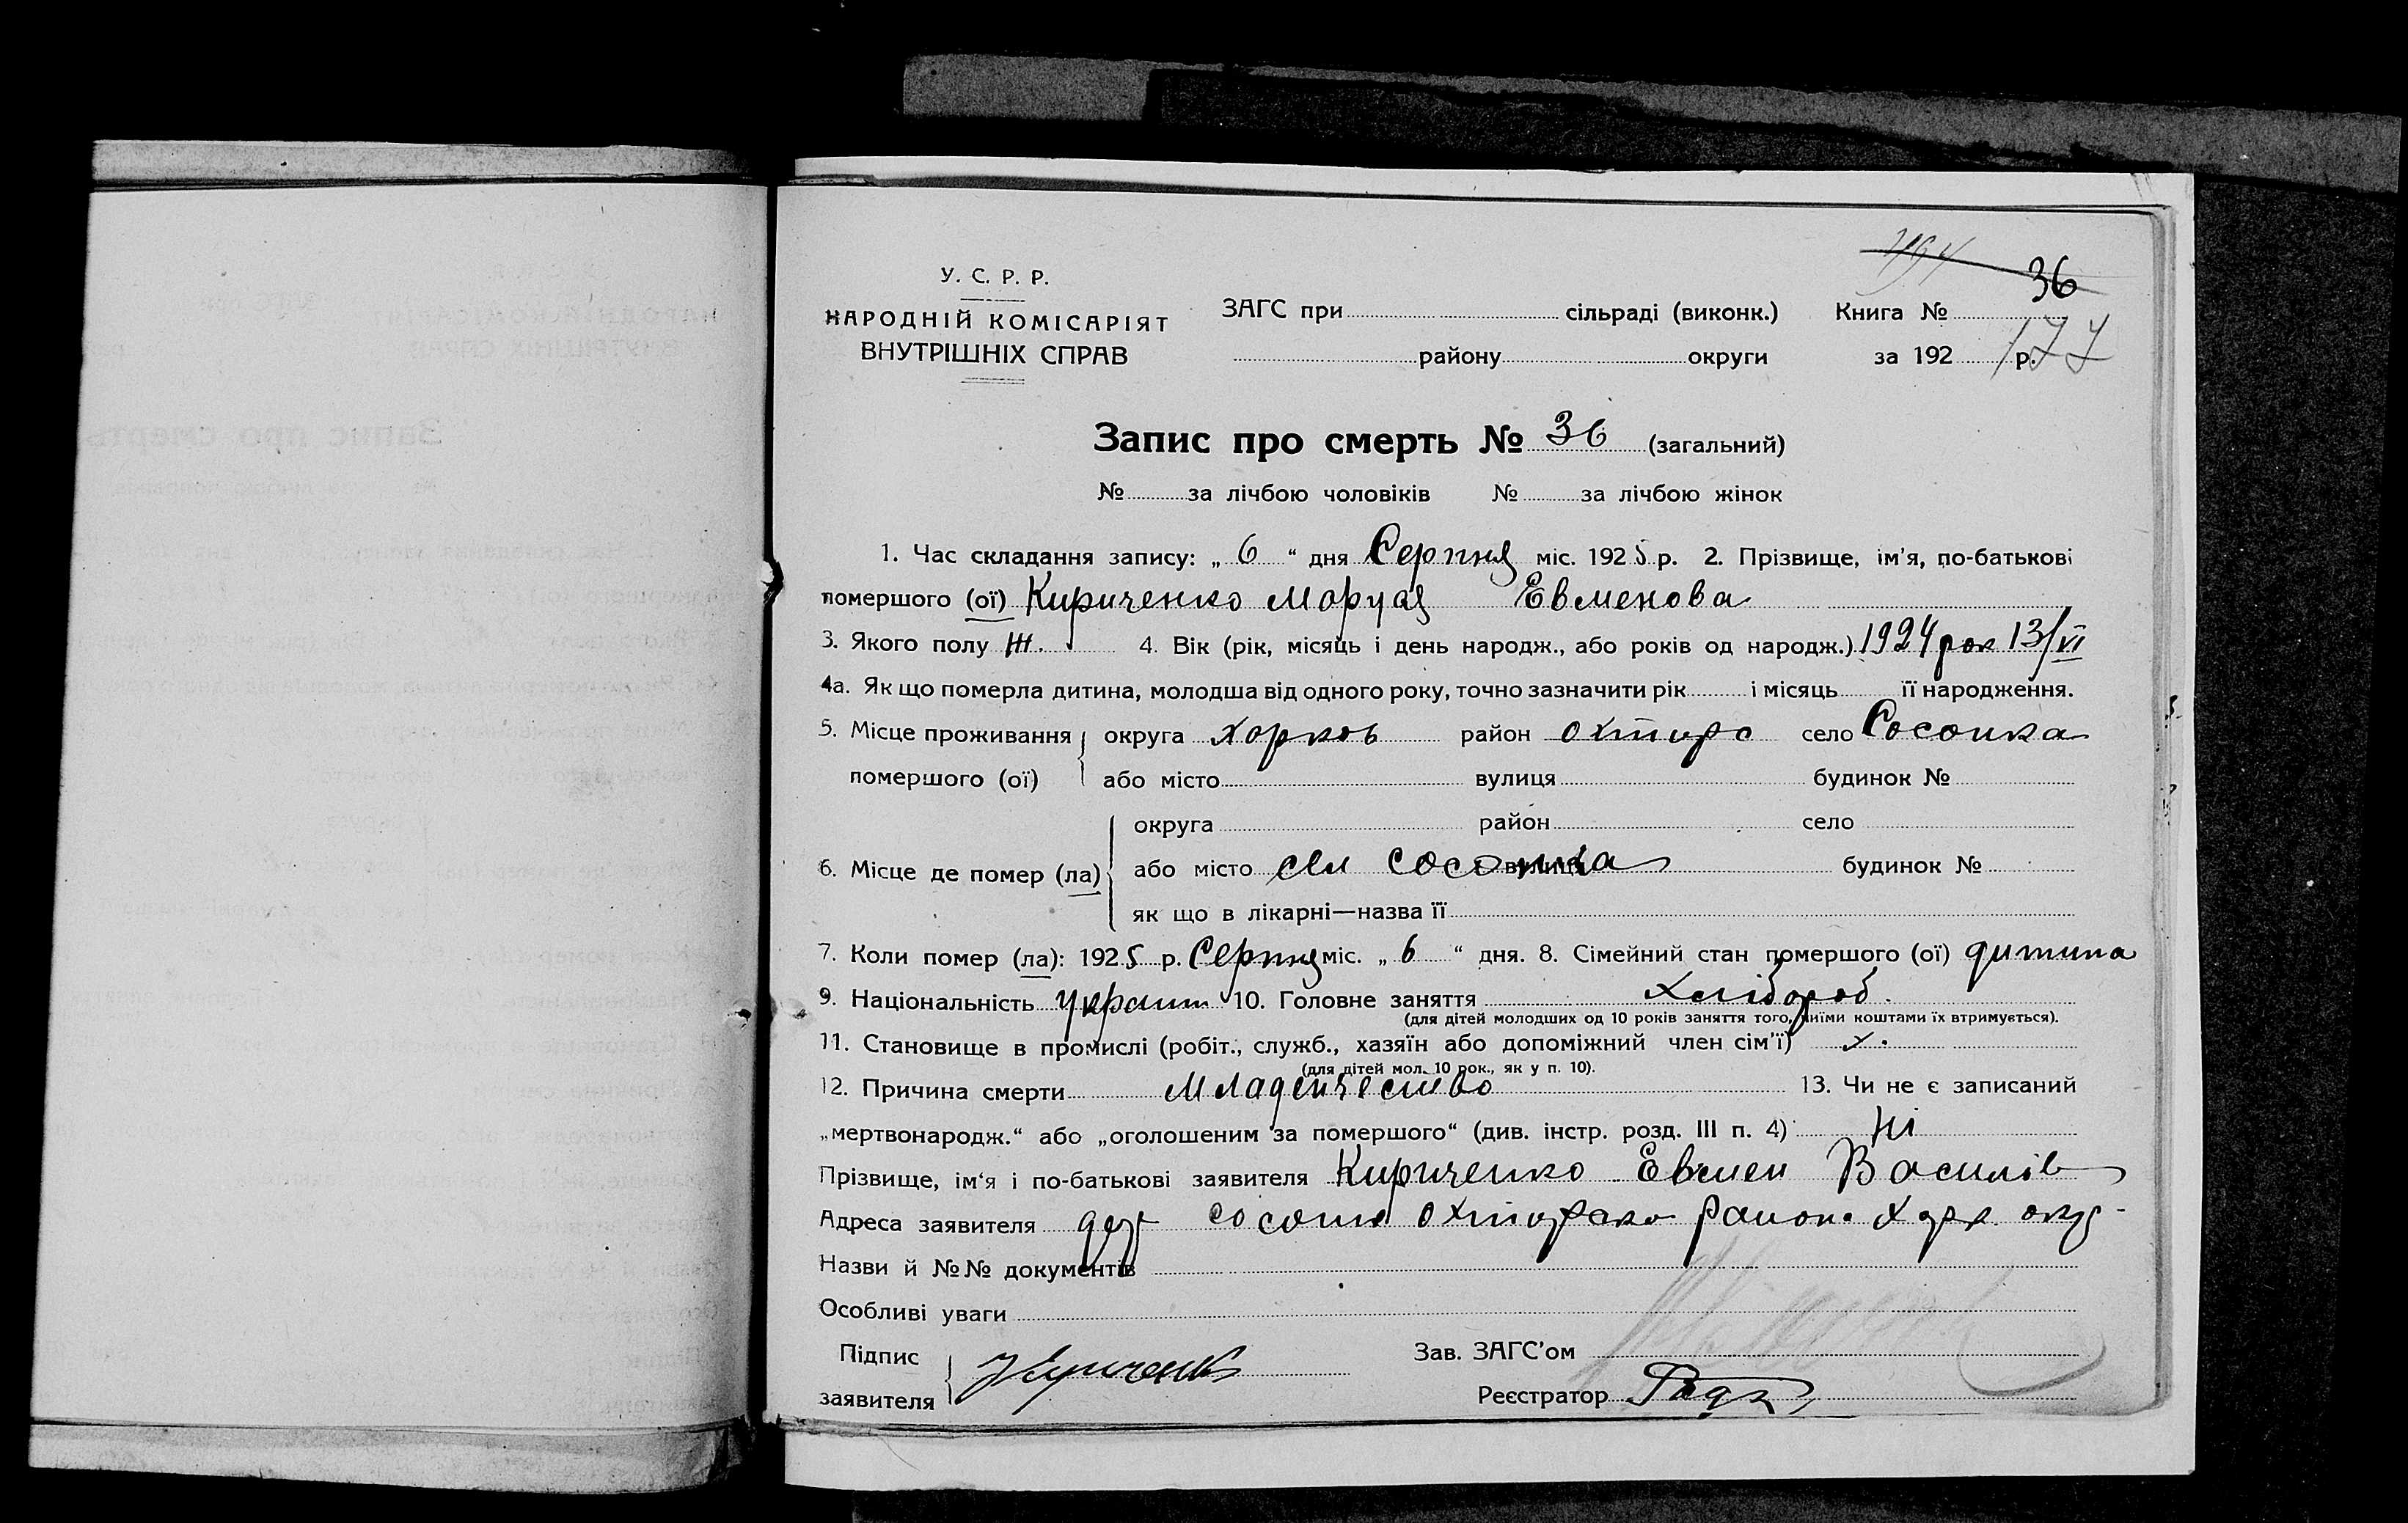 36
У. С. Р. Р.
НАРОДНІЙ КОМІСАРІЯТ
ВНУТРІШНІХ СПРАВ
ЗАГС при сільраді (виконк.) Книга №
району округи за 192 р. 177
Запис про смерть № 36 (загальний)
№ за лічбою чоловіків № за лічбою жінок
1. Час складання запису: „ 6 “ дня Серпня міс. 1925 р. 2. Прізвище, ім'я, по-батькові
помершого (ої) Кириченко Маруся Евменова
3. Якого полу Ж. 4. Вік (рік, місяць і день народж., або років од народж.) 1924 рок 13/VI
4а. Як що померла дитина, молодша від одного року, точно зазначити рік і місяць її народження.
5. Місце проживання округа Харков район Охтирс село Сосонка
помершого (ої) або місто вулиця будинок №
округа район село
6. Місце де помер (ла) або місто сел Сосонка вулиця будинок №
як що в лікарні—назва її
7. Коли помер (ла): 1925 р. Серпня міс. „ 6 “ дня. 8. Сімейний стан помершого (ої) дитина
9. Національність Украин 10. Головне заняття Хлібороб.
(для дітей молодших од 10 років заняття того, чиїми коштами їх втримується).
11. Становище в промислі (робіт., служб., хазяїн або допоміжний член сім'ї) х.
(для дітей мол. 10 рок., як у п. 10).
12. Причина смерти Младенчество 13. Чи не є записаний
„мертвонародж.“ або „оголошеним за помершого“ (див. інстр. розд. III п. 4) Ні
Прізвище, ім'я і по-батькові заявителя Кириченко Евмен Василів
Адреса заявителя Охтирско район Харк окр
Назви й №№ документів
Особливі уваги
Підпис Зав. ЗАГС'ом
заявителя Кириченко Реєстратор